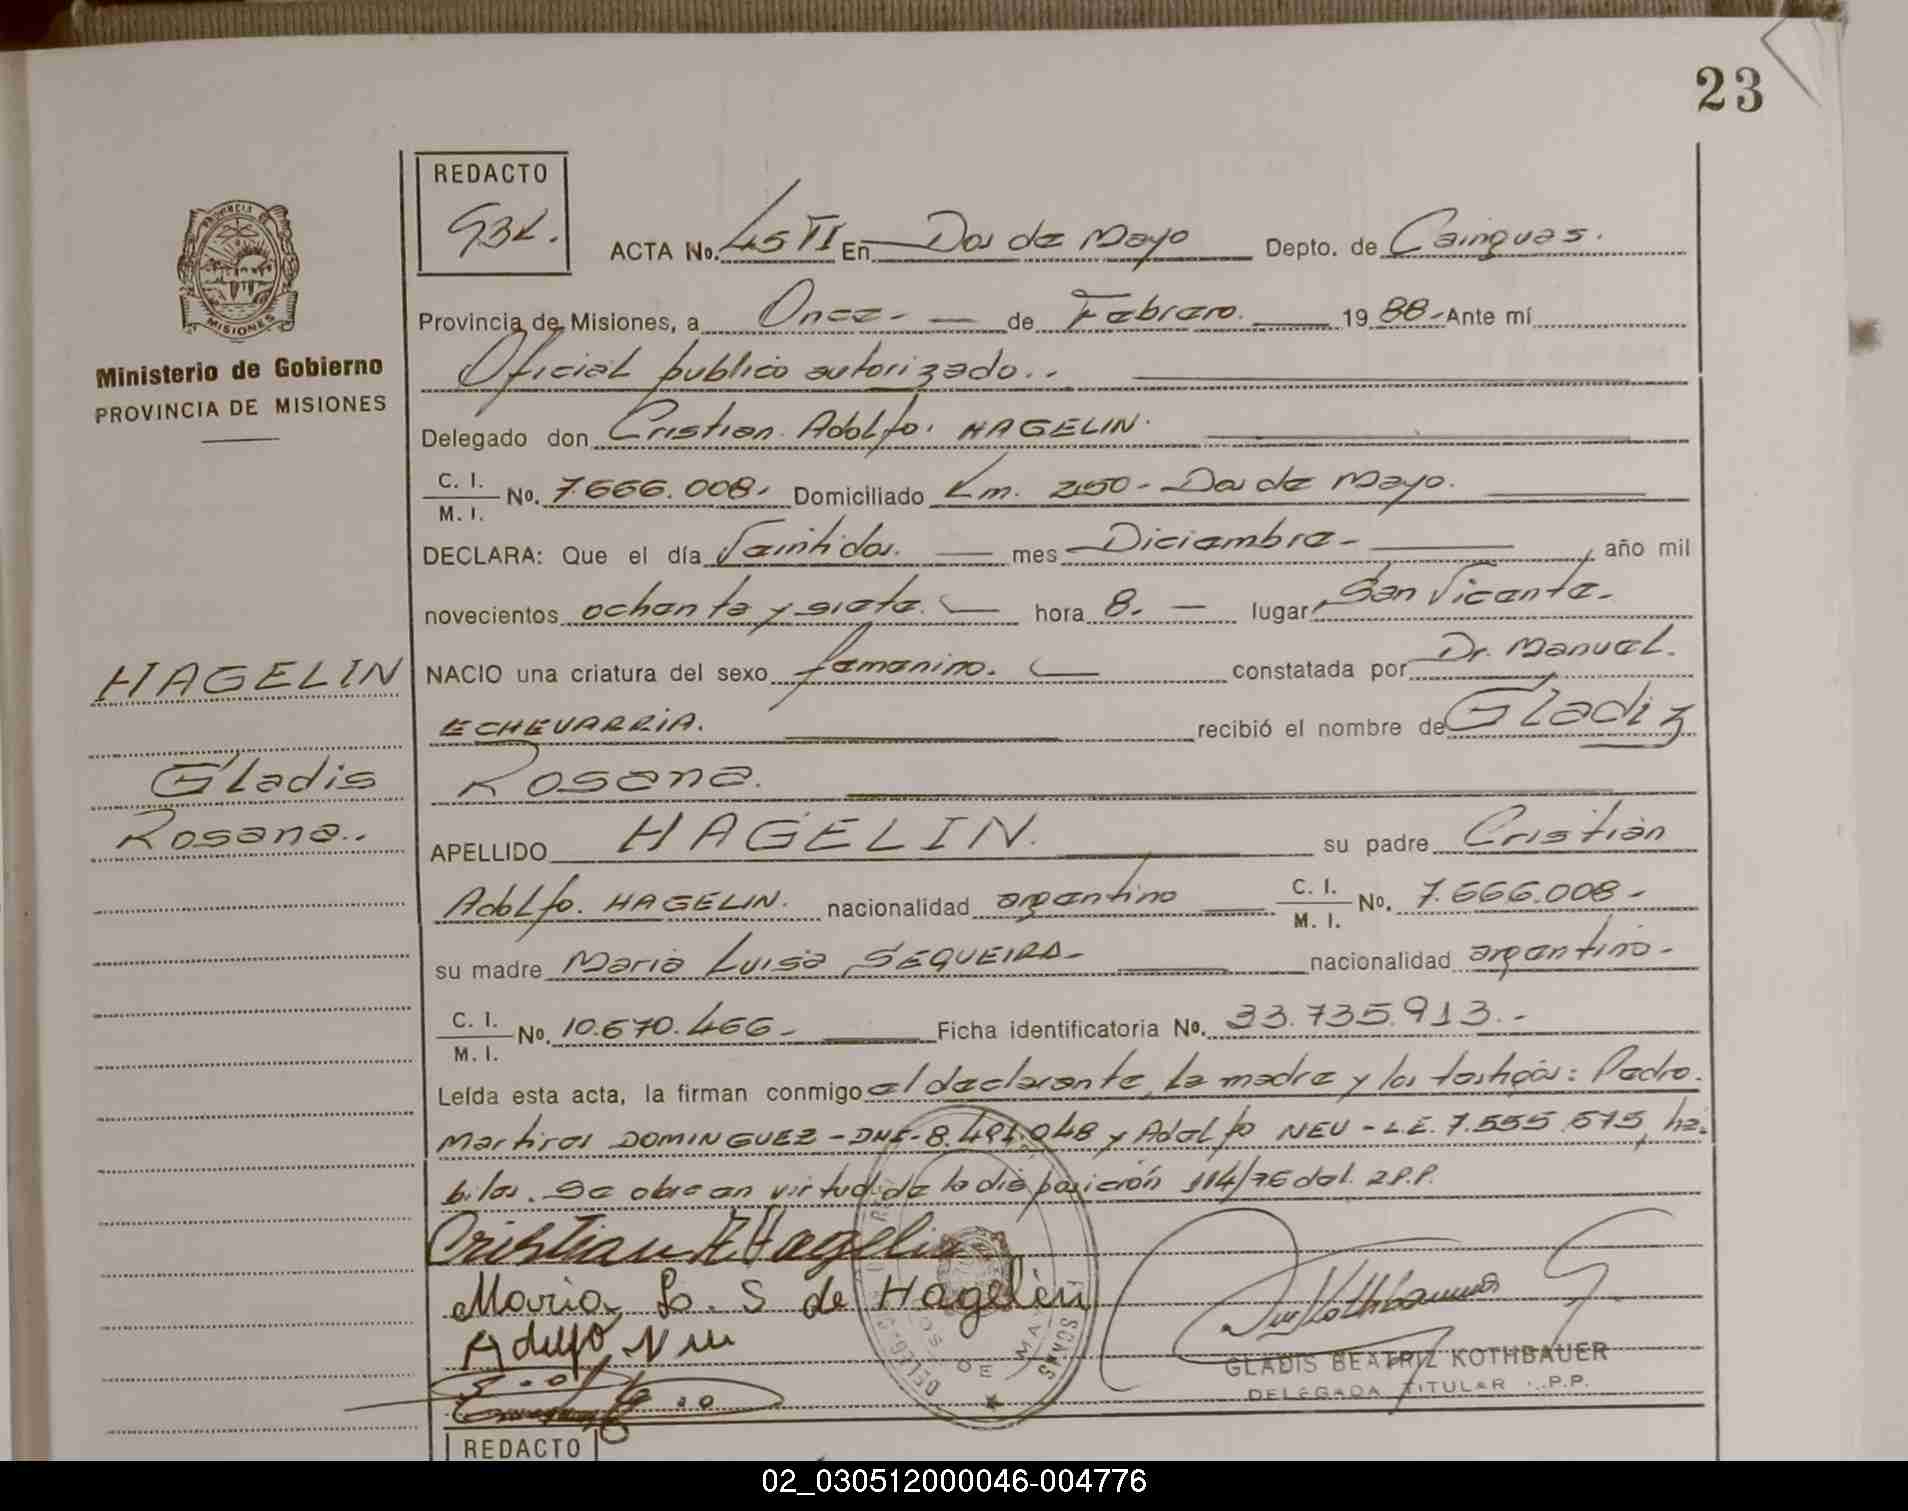 23
REDACTO
ACTA No. 45 VI En Dos de Mayo Depto. de Cainguas.
PROVINCIA DE
MISIONES
Ministerio de Gobierno
PROVINCIA DE MISIONES
Provincia de Misiones, a Once - de Febrero. 1988 - Ante mí
Oficial publico autorizado..
Delegado don Cristian Adolfo. HAGELIN.
C. I.
M. I. No. 7.666.008. Domiciliado Km. 250 - Dos de Mayo.
DECLARA: Que el día Veintidos. mes Diciembre - año mil
novecientos ochenta y siete. hora 8. - lugar San Vicente.
NACIO una criatura del sexo femenino. constatada por Dr. Manuel.
ECHEVARRIA. recibió el nombre de Gladiz
Rosana.
HAGELIN
Gladis
Rosana..
APELLIDO HAGELIN. su padre Cristian
Adolfo. HAGELIN. nacionalidad argentino C. I.
M. I. No. 7.666.008 -
su madre Maria Luisa SEQUEIRA - nacionalidad argentino -
C. I.
M. I. No. 10.670.466 - Ficha identificatoria No. 33.735.913. -
Leída esta acta, la firman conmigo el declarante, la madre y los testigos: Pedro.
Martires DOMINGUEZ - DNI - 8.491.048 y Adolfo NEU - L.E. 7.555.575, há-
biles. Se obre en virtud de la disposición 114/76 del. R.P.P.
Cristian A Hagelin
Maria L. S de Hagelin
Adolfo Neu
Kothbauer
GLADIS BEATRIZ KOTHBAUER
DELEGADA TITULAR R.P.P.
REDACTO
02_030512000046-004776